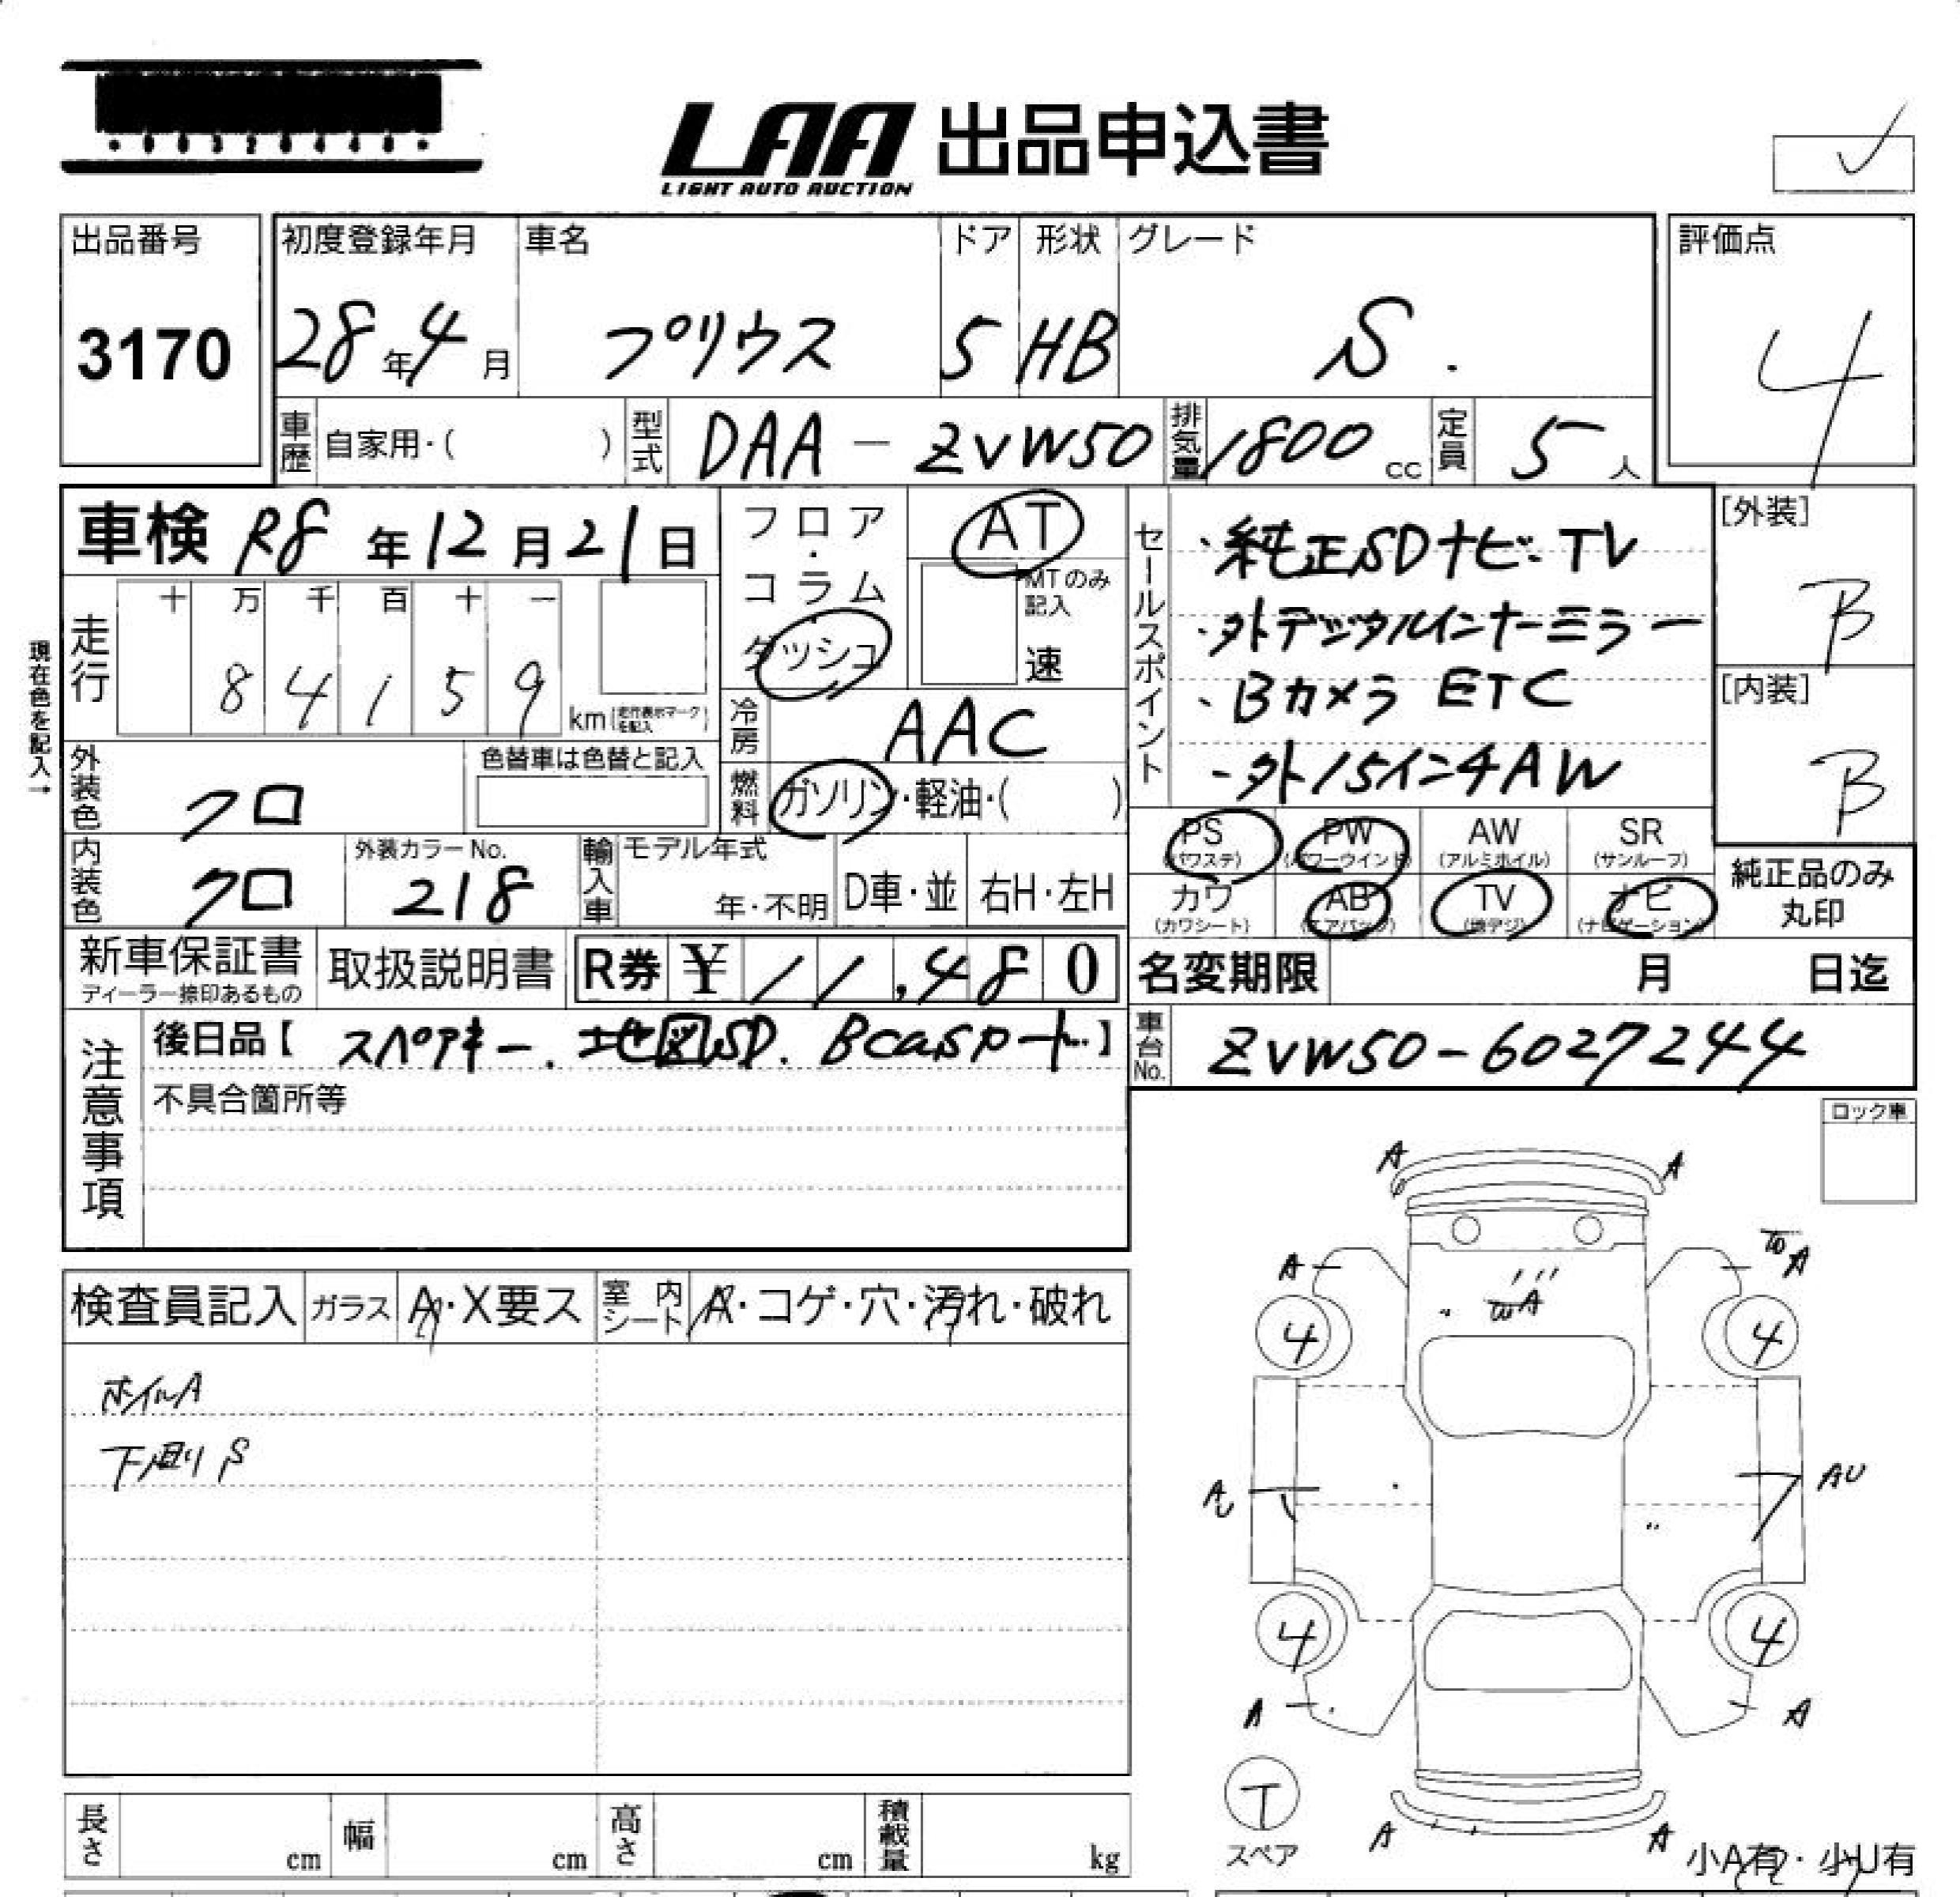 LAA 出品申込書
LIGHT AUTO AUCTION
出品番号
3170
初度登録年月 車名 ドア 形状 グレード
28年4月 プリウス 5 HB S.
評価点
4
車歴 自家用・( ) 型式 DAA-ZVW50 排気量 1800cc 定員 5人
車検 R8年12月21日
フロア・コラム・ダッシュ
AT
MTのみ記入
速
セールスポイント
・純正SDナビ・TV
・外デジタルインナーミラー
・Bカメラ ETC
・外15インチAW
[外装]
B
[内装]
B
現在色を記入→
走行 十 万 千 百 十 一
8 4 1 5 9 km(走行表示マークを記入)
冷房 AAC
燃料 ガソリン・軽油・( )
外装色 クロ 色替車は色替と記入
内装色 クロ 外装カラーNo. 218
輸入車 モデル年式 年・不明 D車・並 右H・左H
PS PW AW SR
(パワステ) (パワーウインド) (アルミホイル) (サンルーフ)
カワ AB TV ナビ
(カワシート) (エアバッグ) (地デジ) (ナビゲーション)
純正品のみ丸印
新車保証書 取扱説明書 R券 ¥11,480
ディーラー捺印あるもの
名変期限 月 日迄
注意事項
後日品【スペアキー. 地図SD. Bcasカード..】
車台No. ZVW50-6027244
不具合箇所等
ロック車
検査員記入 ガラス A・X要ス 室内シート A・コゲ・穴・汚れ・破れ
ホイルA
下廻りS
A A
A A
A
4 4
A AU
4 4
A A
T
スペア
A A
小A有・小U有
長さ cm 幅 cm 高さ cm 積載量 kg